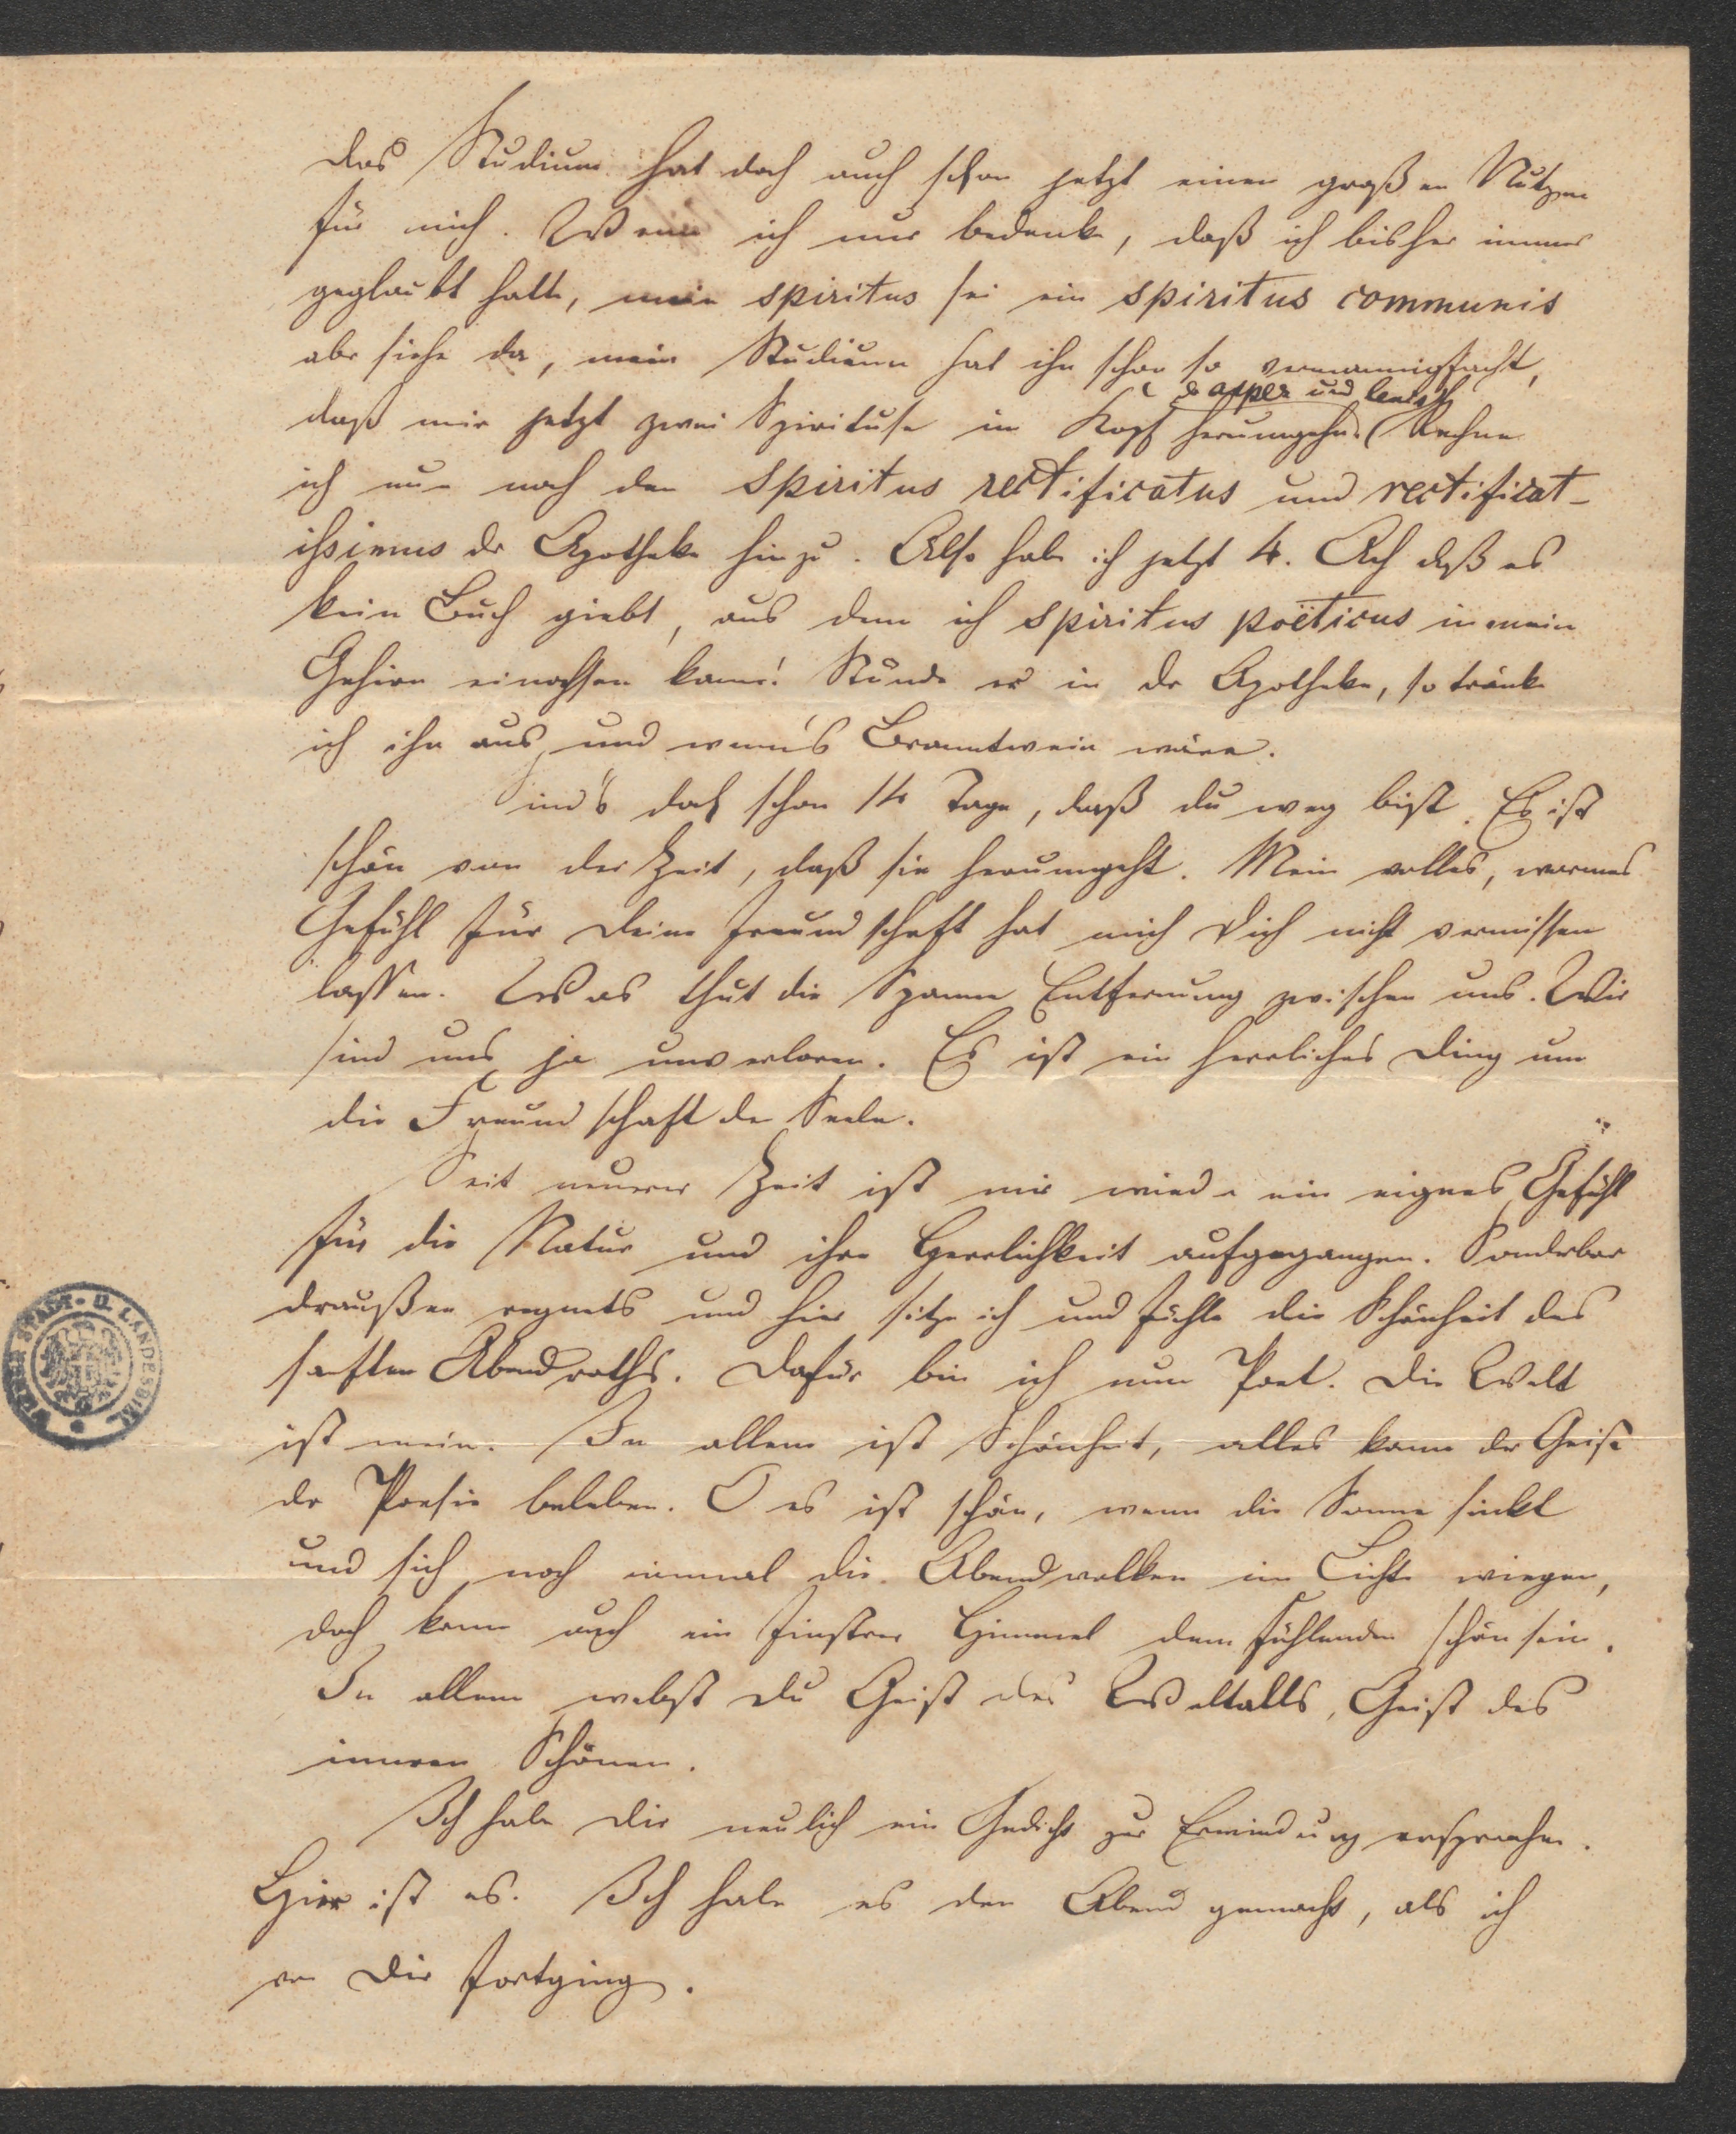 Das Studium hat doch auch schon jetzt einen großen Nutzen
für mich. Wenn ich nur bedenke, daß ich bisher immer
geglaubt hatte, mein spiritus sei ein spiritus communis
aber siehe da, mein Studium hat ihn schon so vermannigfacht,
asper und lenis
daß mir jetzt zwei Spirituse im Kopf herumgehn. Rechne
ich nun noch den spiritus rectificatus und rectificat-
issimus der Apotheke hinzu. Also habe ich jetzt 4. Ach daß es
kein Buch giebt, aus dem ich spiritus poëticus in mein
Gehirn einochsen kann! Stünde er in der Apotheke, so tränke
ich ihn aus, und wenn's Branntwein wäre.
Sind's doch schon 14 Tage, daß du weg bist. Es ist
schön von der Zeit, daß sie herumgeht. Mein volles, warmes
Gefühl für Deine Freundschaft hat mich Dich nicht vermissen
lassen. Was thut die Spanne Entfernung zwischen uns. Wir
sind uns ja unverloren. Es ist ein herrliches Ding um
die Freundschaft der Seele.
Seit neuerer Zeit ist mir wieder ein eignes Gefühl
für die Natur und ihre Herrlichkeit aufgegangen. Sonderbar
draußen regnets und hier sitze ich und fühle die Schönheit des
sanften Abendroths. Dafür bin ich nun Poet. Die Welt
ist mein. In allem ist Schönheit, alles kann der Geist
der Poesie beleben. O es ist schön, wenn die Sonne sinkt
und sich noch einmal die Abendwolken im Lichte wiegen,
doch kann auch ein finstrer Himmel dem Fühlenden schön sein.
In allem webst Du Geist des Weltalls, Geist des
inneren Schönen.
Ich habe Dir neulich ein Gedicht zur
Hier ist es. Ich habe es den Abend gemacht, als ich
von Dir fortging.
WIENER STADT- U. LANDESBIBL.